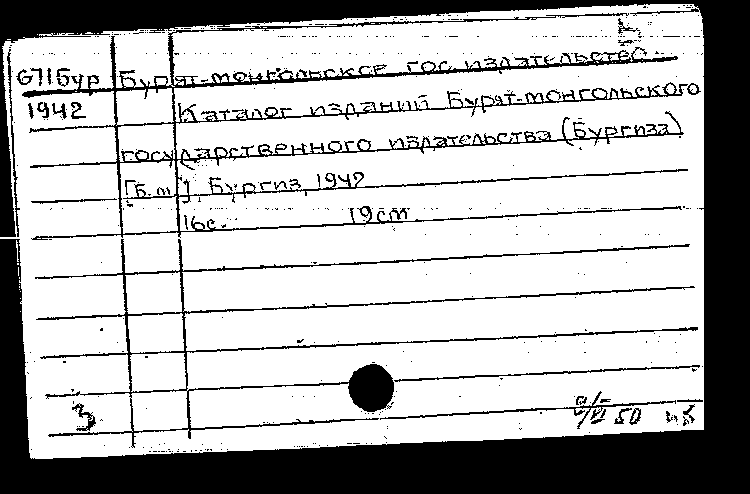 Б
G71Бур Бурят-монгольское гос. издательство.
1942 Каталог изданий Бурят-монгольского
государственного издательства (Бургиза)
[Б.м], Бургиз, 1942
16с. 19см.
3
50